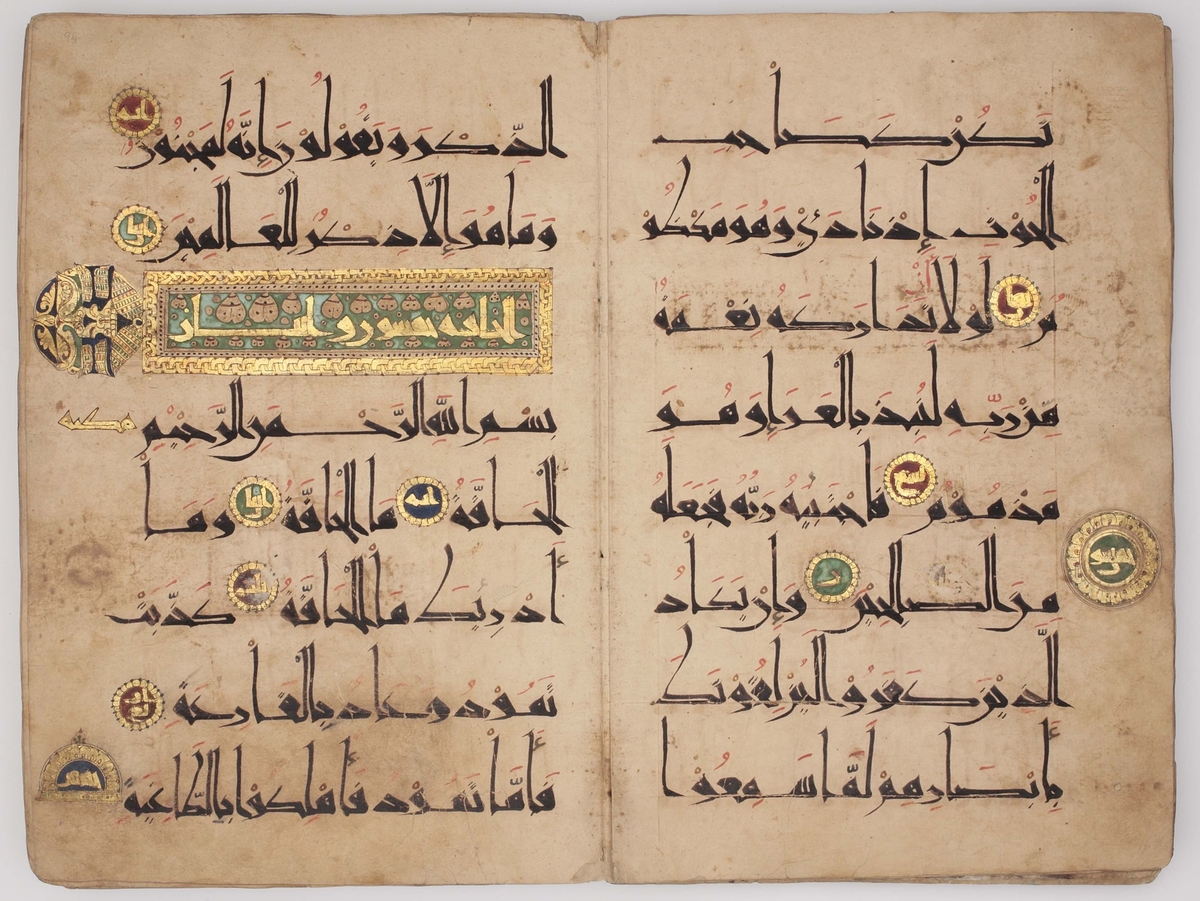 تَكُنْ كَصَاحِبِ
الْحُوتِ إِذْ نَادَىٰ وَهُوَ مَكْظُو
مٌ لَوْلَا أَنْ تَدَارَكَهُ نِعْمَةٌ
مِنْ رَبِّهِ لَنُبِذَ بِالْعَرَاءِ وَهُوَ
مَذْمُومٌ فَاجْتَبَاهُ رَبُّهُ فَجَعَلَهُ
مِنَ الصَّالِحِينَ وَإِنْ يَكَادُ
الَّذِينَ كَفَرُوا لَيُزْلِقُونَكَ
بِأَبْصَارِهِمْ لَمَّا سَمِعُوا
الذِّكْرَ وَيَقُولُونَ إِنَّهُ لَمَجْنُونٌ
وَمَا هُوَ إِلَّا ذِكْرٌ لِلْعَالَمِينَ
الحاقه خمسون و
بِسْمِ اللَّهِ الرَّحْمَنِ الرَّحِيمِ مكيه
الْحَاقَّةُ مَا الْحَاقَّةُ وَمَا
أَدْرَيكَ مَا الْحَاقَّةُ كَذَّبَتْ
ثَمُودُ وَعَادٌ بِالْقَارِعَةِ
فَأَمَّا ثَمُودُ فَأُهْلِكُوا بِالطَّاغِيَةِ